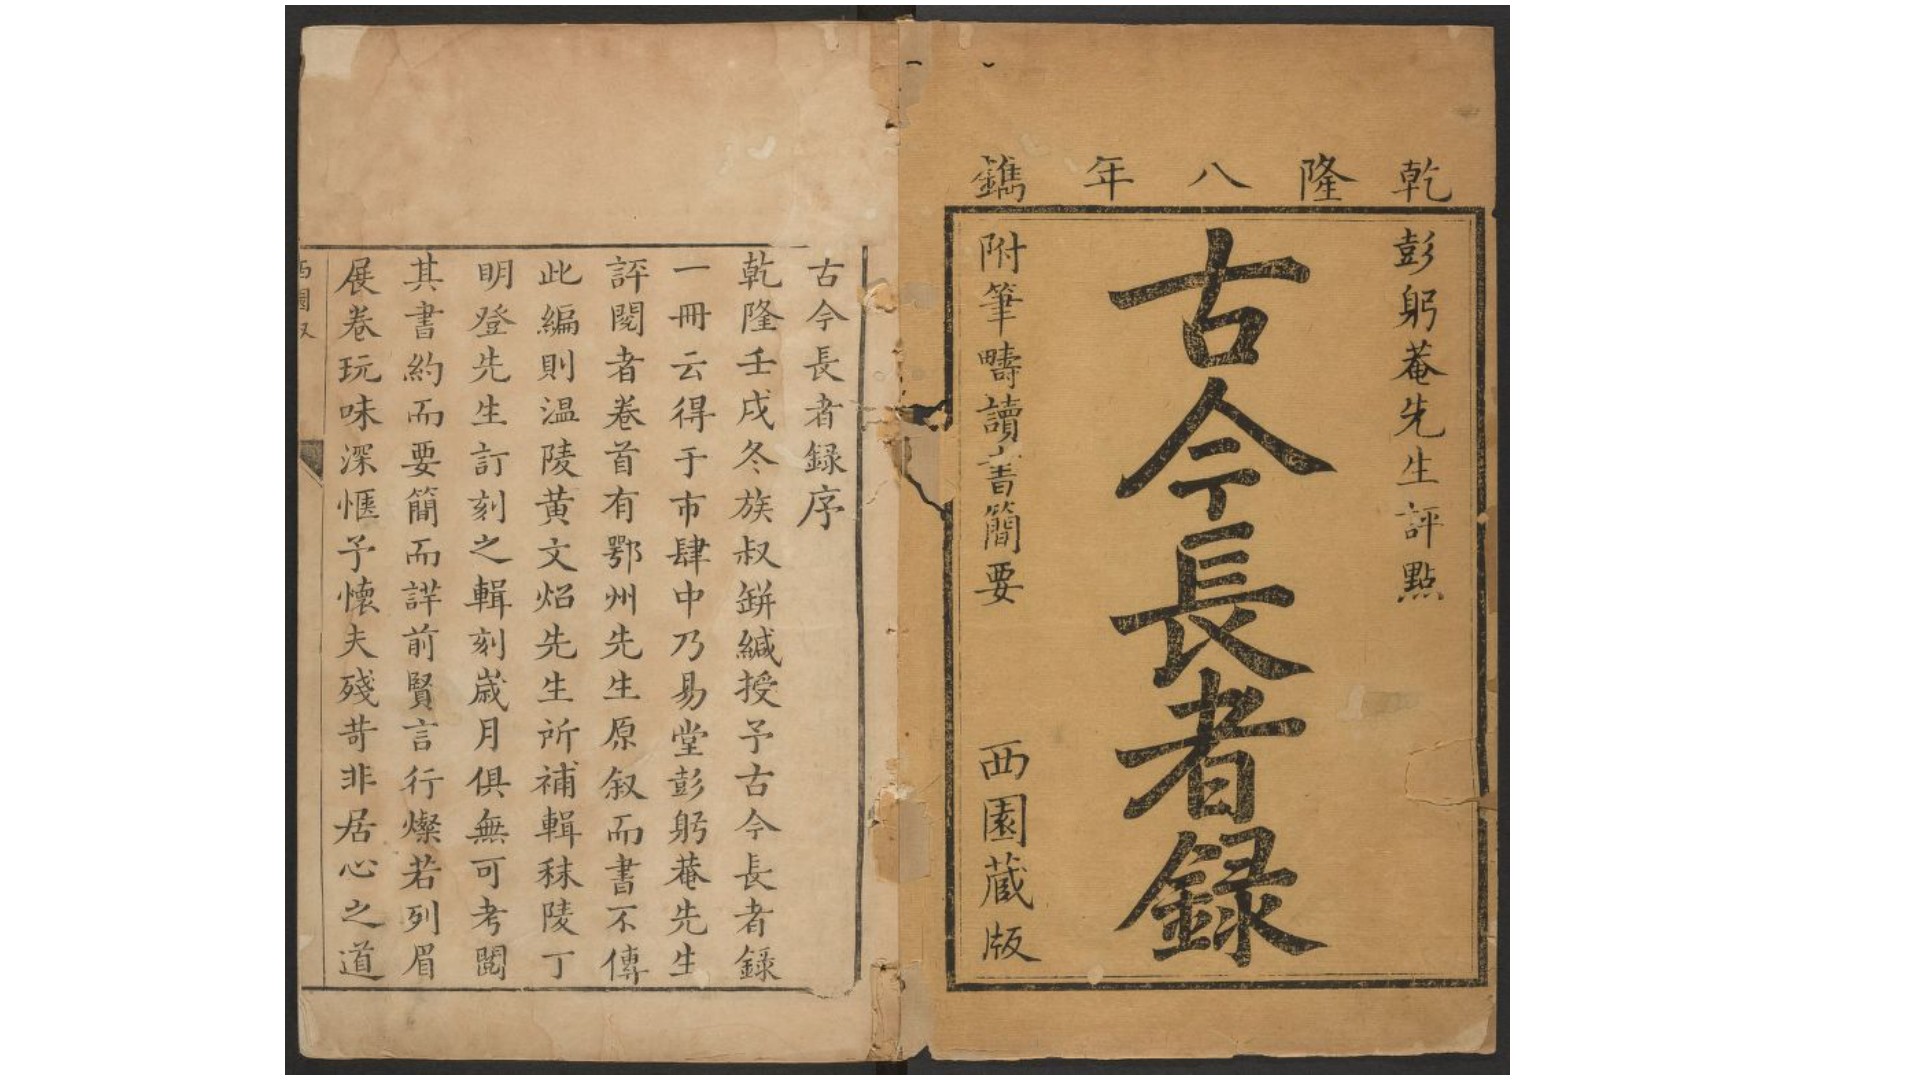 乾隆八年鐫
彭躬菴先生評點
古今長者録
附筆疇讀書簡要
西園蔵版
古今長者録序
乾隆壬戌冬族叔缾緘授予古今長者錄
一冊云得于市肆中乃易堂彭躬菴先生
評閱者卷首有鄂州先生原叙而書不傳
此編則温陵黄文炤先生所補輯秣陵丁
明登先生訂刻之輯刻歲月俱無可考閱
其書約而要簡而詳前賢言行燦若列眉
展卷玩味深愜予懷夫殘苛非居心之道